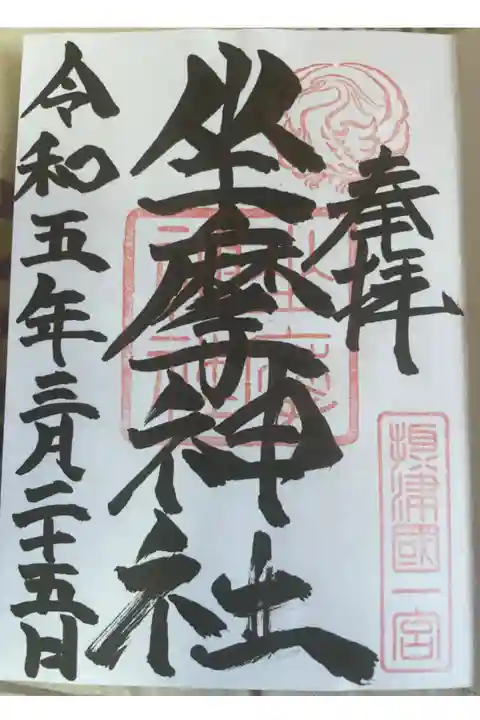 奉拝
摂津國一宮
坐摩神社
坐摩神社
令和五年三月二十五日